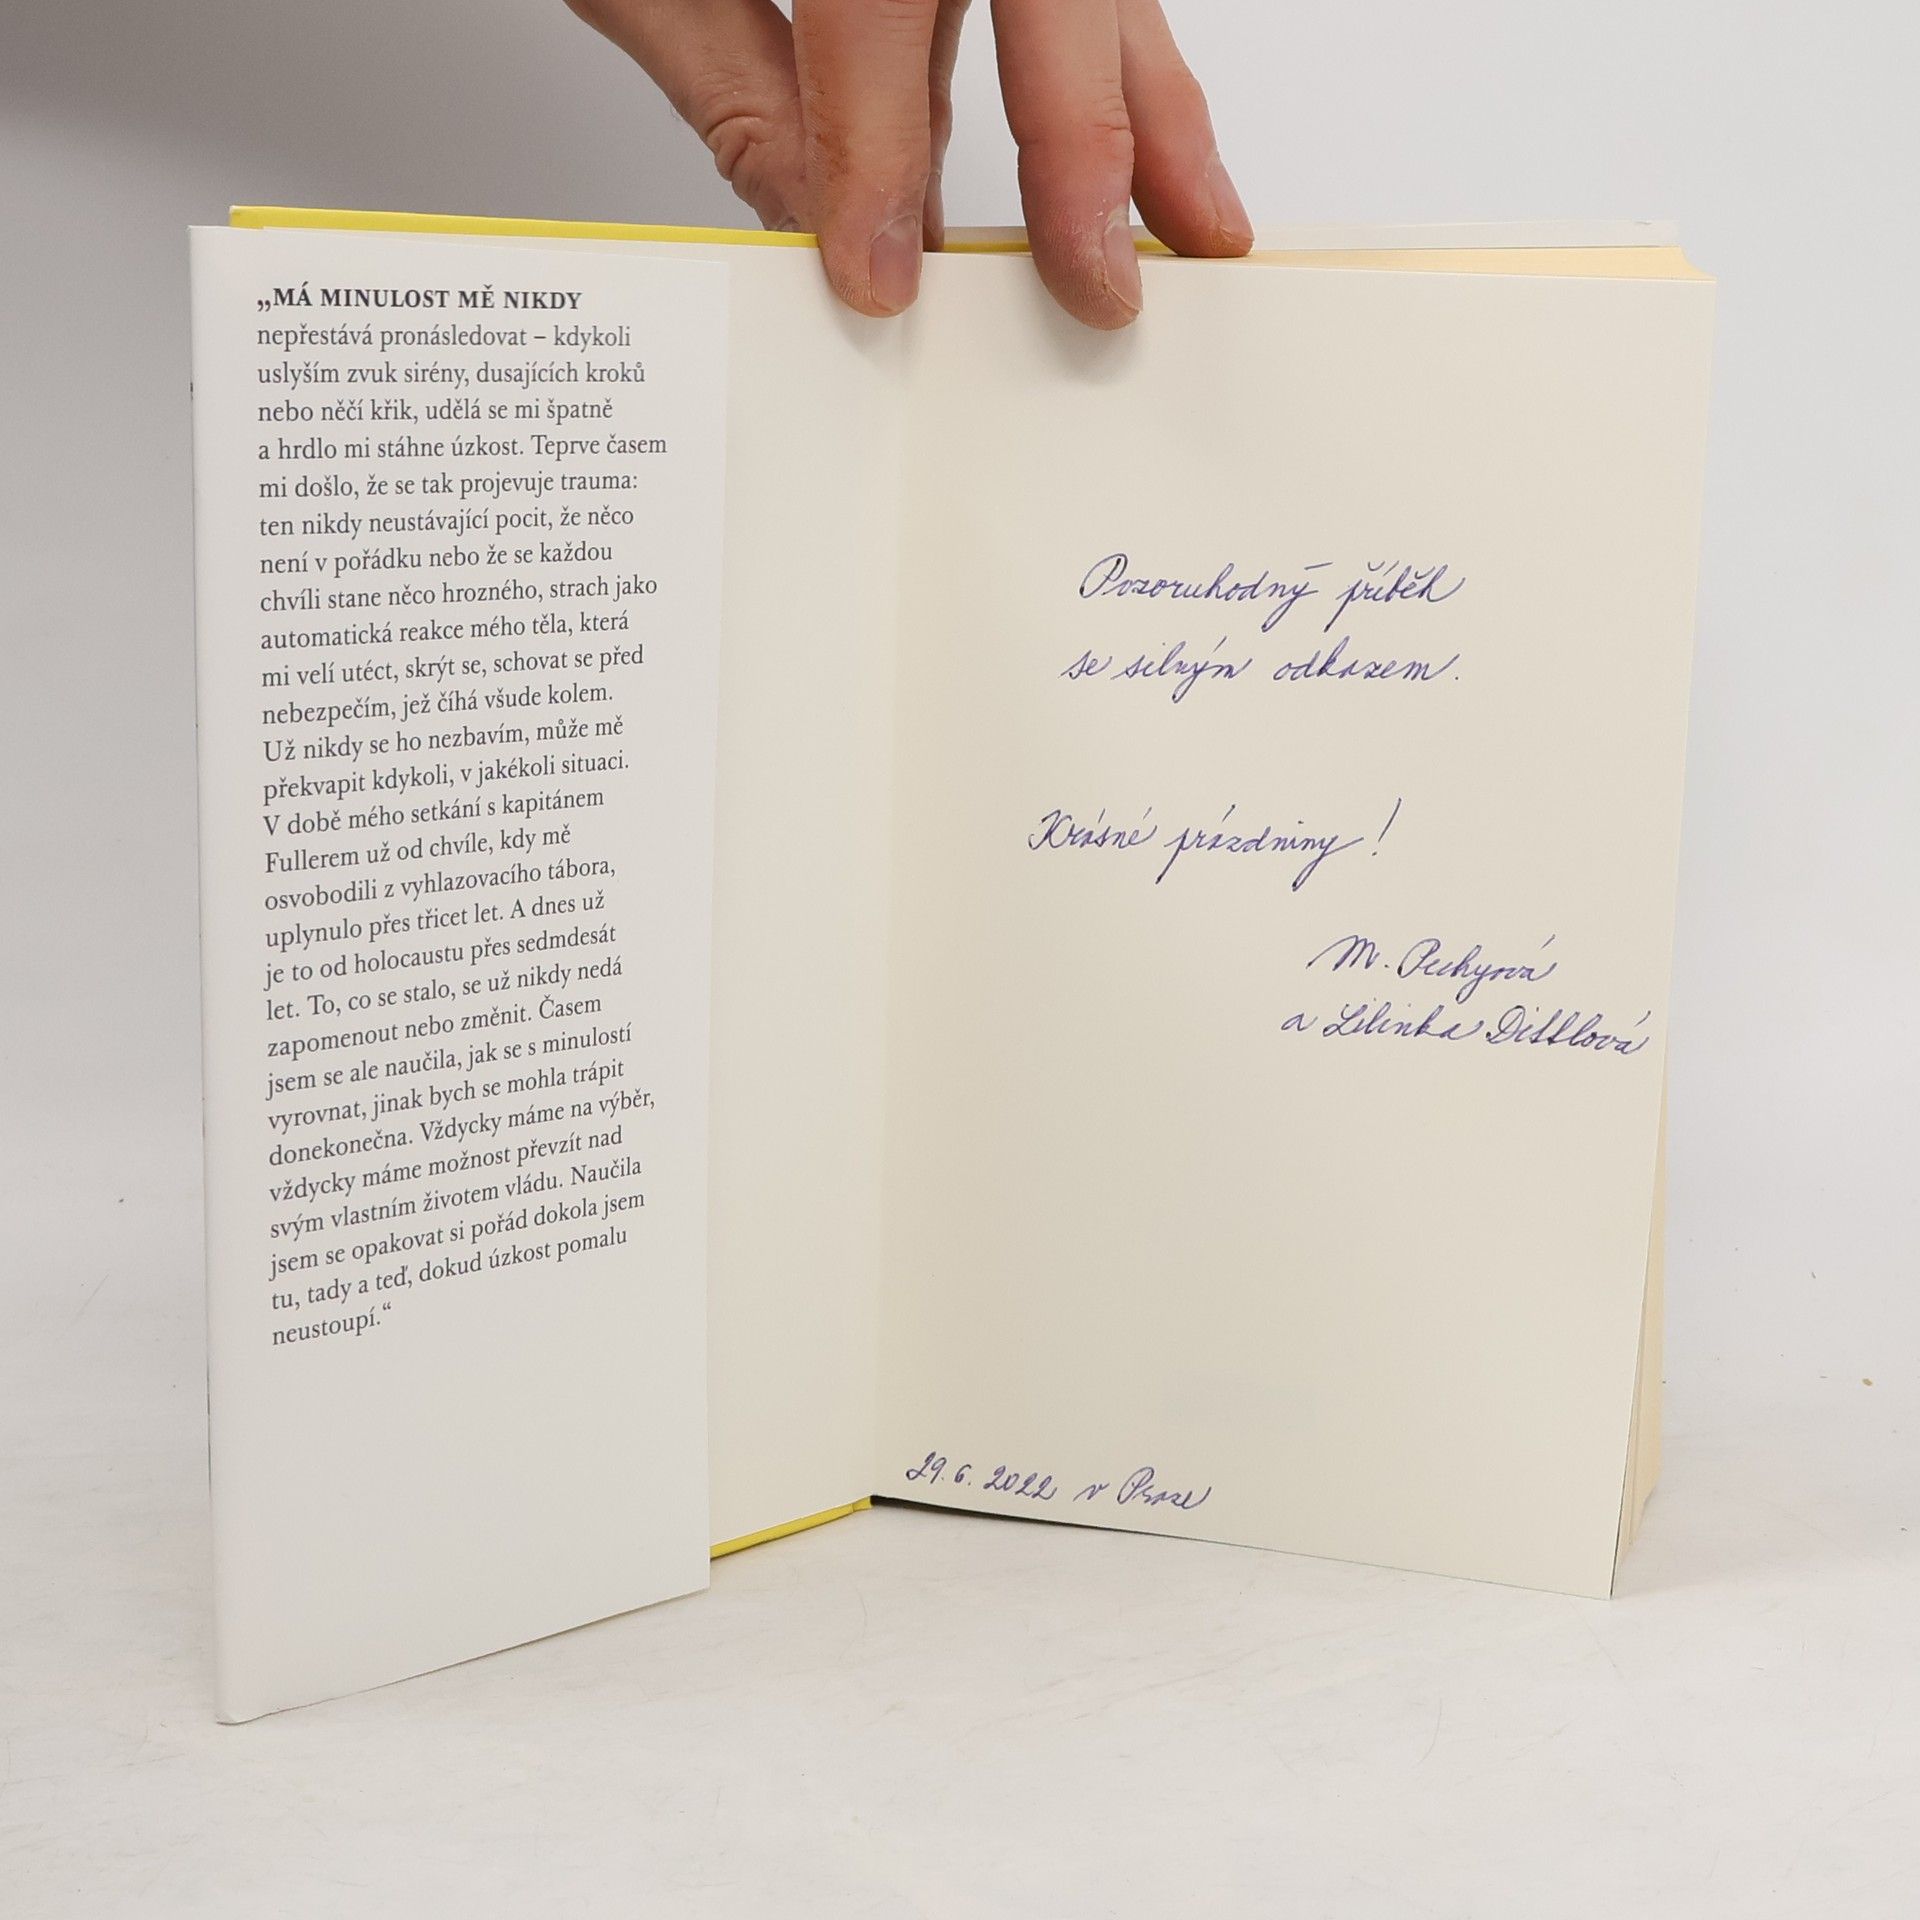 „MÁ MINULOST MĚ NIKDY
nepřestává pronásledovat – kdykoli
uslyším zvuk sirény, dusajících kroků
nebo něčí křik, udělá se mi špatně
a hrdlo mi stáhne úzkost. Teprve časem
mi došlo, že se tak projevuje trauma:
ten nikdy neustávající pocit, že něco
není v pořádku nebo že se každou
chvíli stane něco hrozného, strach jako
automatická reakce mého těla, která
mi velí utéct, skrýt se, schovat se před
nebezpečím, jež číhá všude kolem.
Už nikdy se ho nezbavím, může mě
překvapit kdykoli, v jakékoli situaci.
V době mého setkání s kapitánem
Fullerem už od chvíle, kdy mě
osvobodili z vyhlazovacího tábora,
uplynulo přes třicet let. A dnes už
je to od holocaustu přes sedmdesát
let. To, co se stalo, se už nikdy nedá
zapomenout nebo změnit. Časem
jsem se ale naučila, jak se s minulostí
vyrovnat, jinak bych se mohla trápit
donekonečna. Vždycky máme na výběr,
vždycky máme možnost převzít nad
svým vlastním životem vládu. Naučila
jsem se opakovat si pořád dokola jsem
tu, tady a teď, dokud úzkost pomalu
neustoupí.“
Pozoruhodný příběh
se silným odkazem.
Krásné prázdniny!
M. Pechyová
a Lilinka Dittlová
29. 6. 2022 v Praze